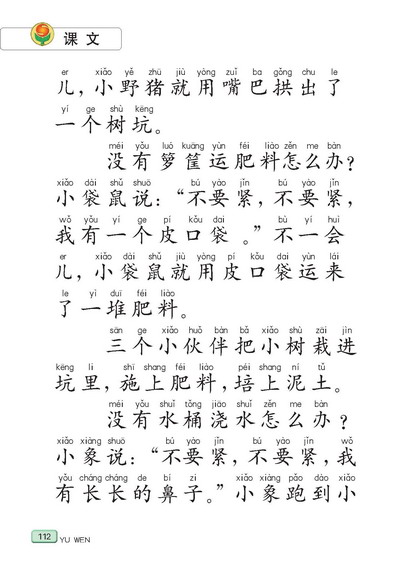 课文
er xiǎo yě zhū jiù yòng zuǐ ba gǒng chu le
儿，小野猪就用嘴巴拱出了
yí ge shù kēng
一个树坑。
méi yǒu luó kuāng yùn féi liào zěn me bàn
没有箩筐运肥料怎么办？
xiǎo dài shǔ shuō bú yào jǐn bú yào jǐn
小袋鼠说：“不要紧，不要紧，
wǒ yǒu yí ge pí kǒu dai bù yí huì
我有一个皮口袋。”不一会
er xiǎo dài shǔ jiù yòng pí kǒu dai yùn lái
儿，小袋鼠就用皮口袋运来
le yì duī féi liào
了一堆肥料。
sān ge xiǎo huǒ bàn bǎ xiǎo shù zāi jìn
三个小伙伴把小树栽进
kēng li shī shang féi liào péi shang ní tǔ
坑里，施上肥料，培上泥土。
méi yǒu shuǐ tǒng jiāo shuǐ zěn me bàn
没有水桶浇水怎么办？
xiǎo xiàng shuō bú yào jǐn bú yào jǐn wǒ
小象说：“不要紧，不要紧，我
yǒu cháng cháng de bí zi xiǎo xiàng pǎo dào xiǎo
有长长的鼻子。”小象跑到小
112 YU WEN